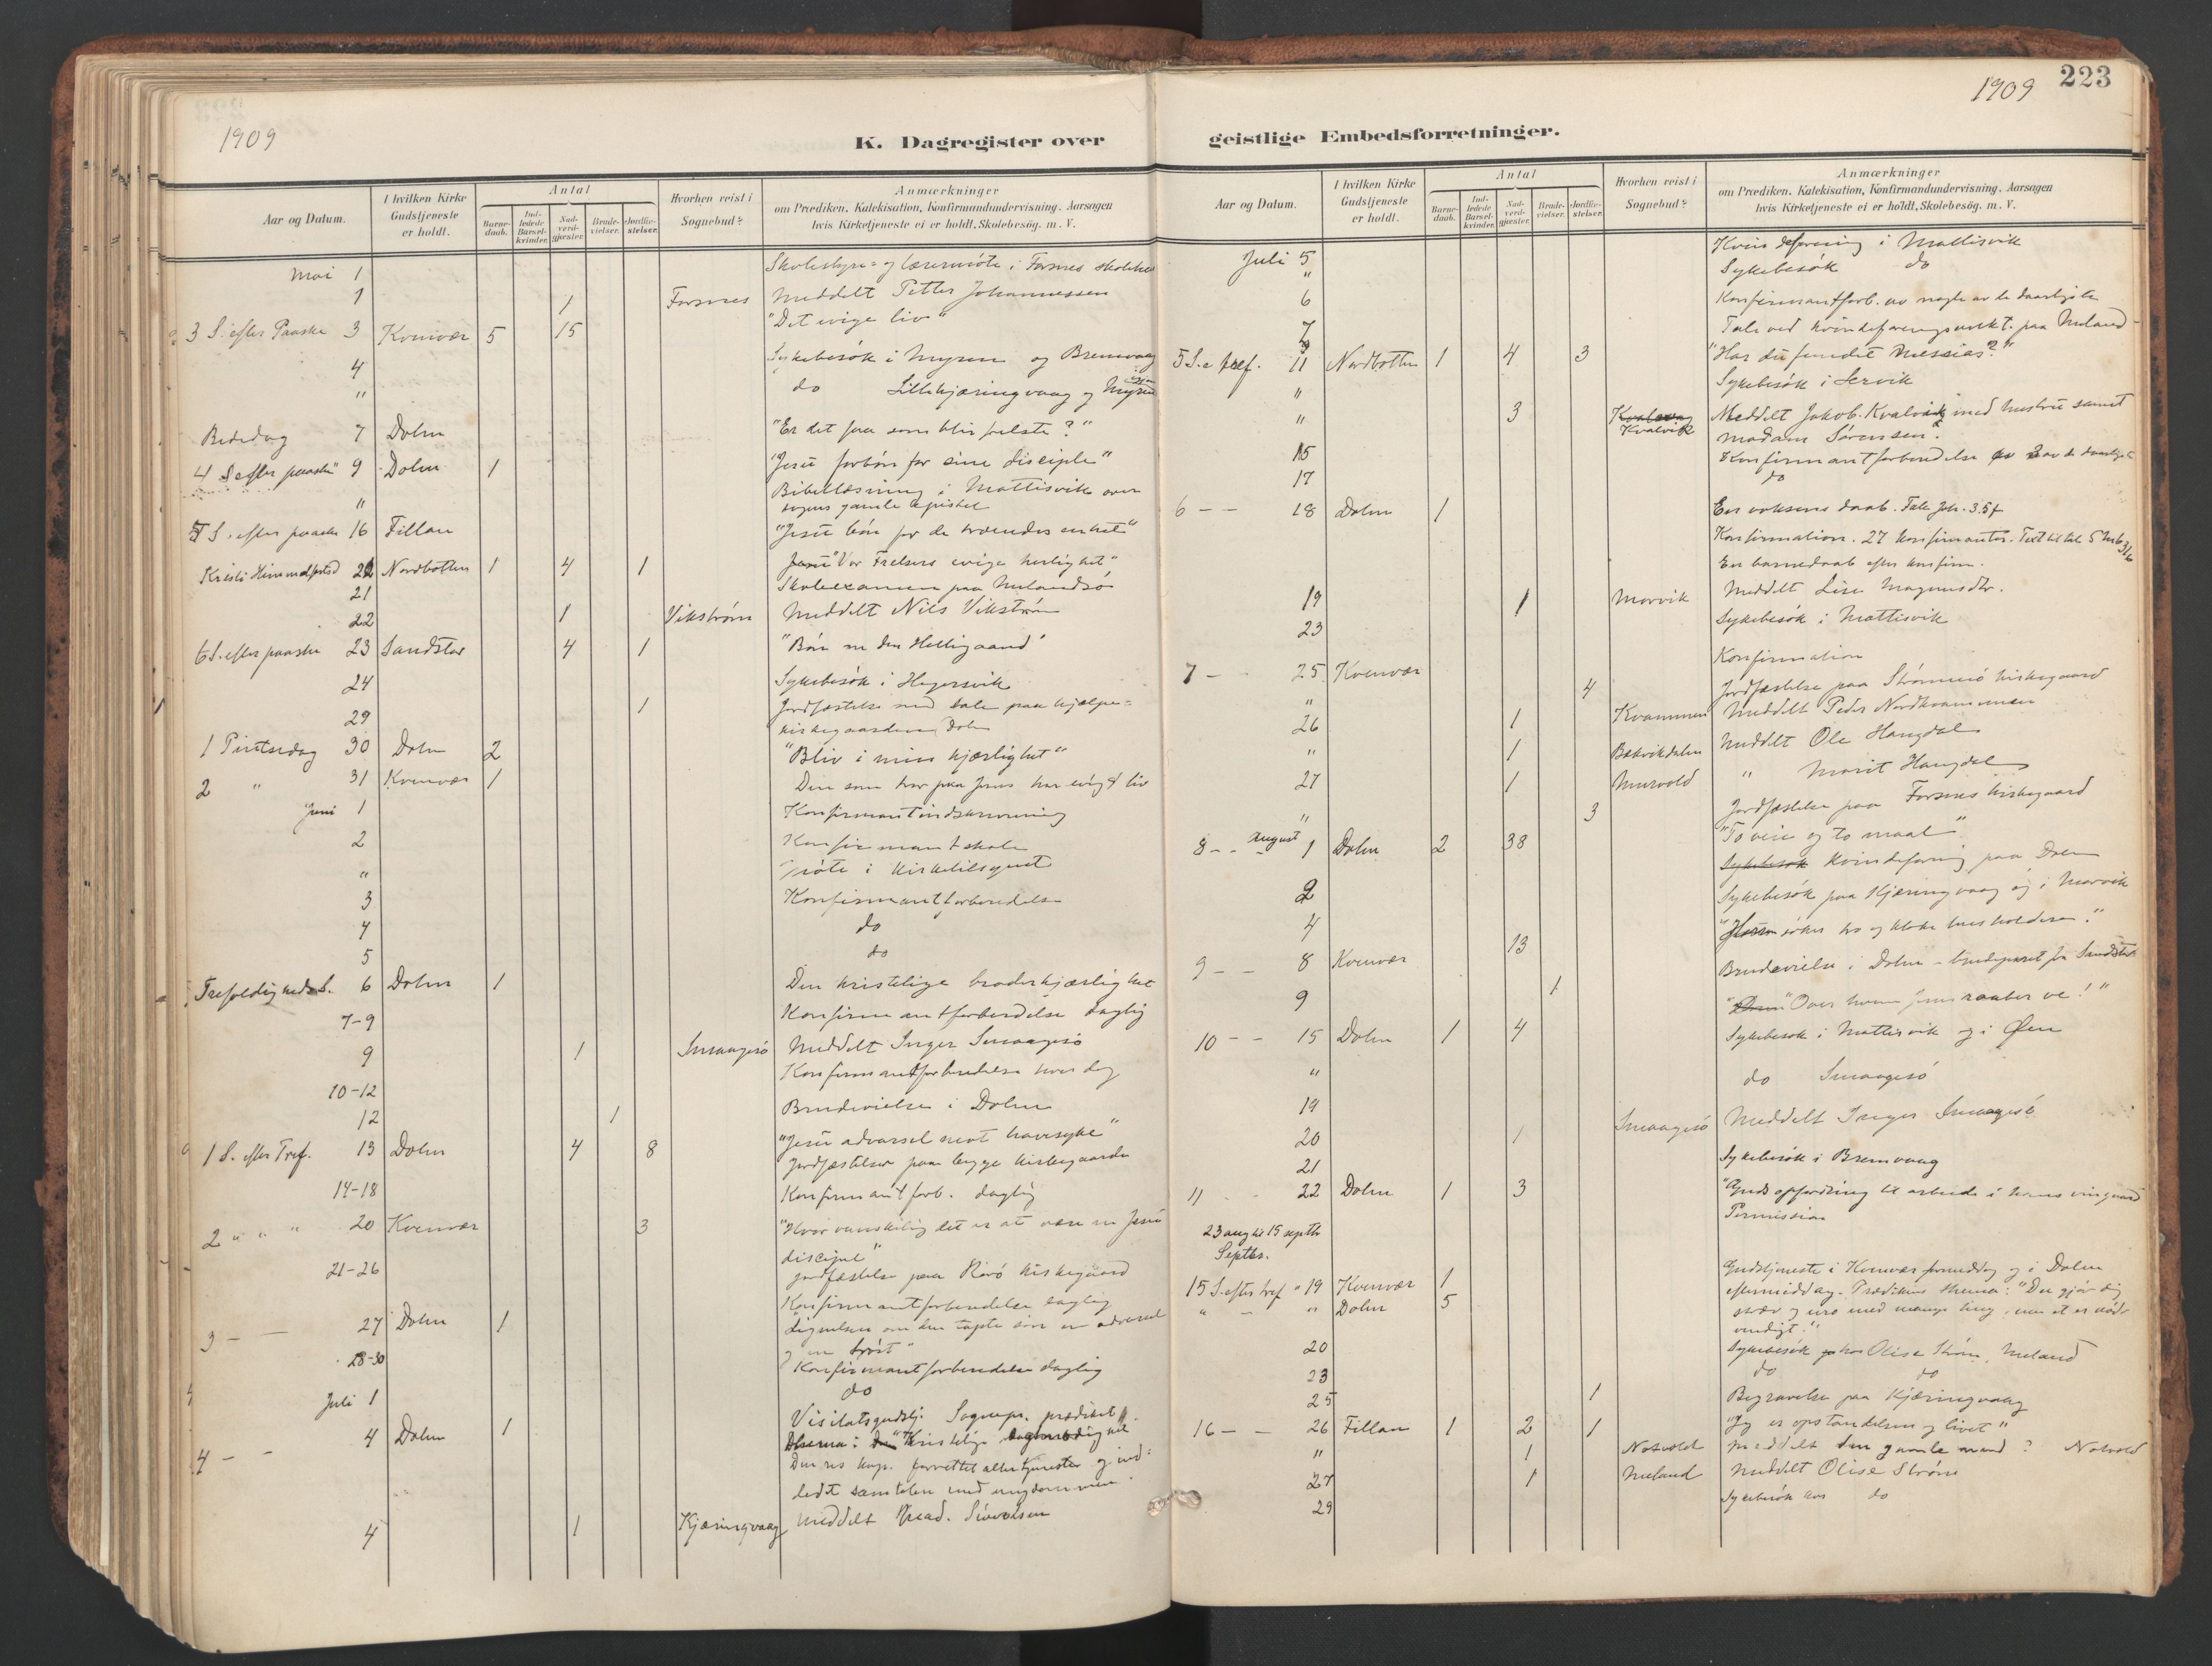 1909
K. Dagregister over
Aar og Datum.
I hvilken Kirke Gudstjeneste er holdt.
Antal
Barne-daab.
Ind-ledede Barsel-kvinder.
Nad-verd-gjæster.
Brude-vielser.
Jordfæ-stelser.
Hvorhen reist i Sognebud?
Anmærkninger
om Prædiken, Katekisation, Konfirmandundervisning, Aarsagen
hvis Kirketjeneste ei er holdt, Skolebesøg. m. V.
Mai 1 Skolestyre- og lærermöte i Forsnes
1 1 Forsnes Meddelt Petter Johannessen
3 S. efter Paaske 3 Kvenvær 5 15 "Det evige liv"
4 Sykebesök i Myren og Bremvaag
" do Lillekjæringvaag og Myren
Bededag 7 Dolm "Er det faa som blir frelste?"
4 S efter paaske 9 Dolm 1 "Jesu forbön for sine disciple"
" Bibellæsning i Mattisvik over
dagens gamle epistel
5 S. efter paaske 16 Fillan "Jesu bön for de troendes enhet"
Kristi Himmelfartsd 20 Nordbotten 1 4 1 "Vor Frelsers evige herlighet"
21 Skoleexamen paa Melandsö
22 1 Vikström Meddelt Nils Vikström
6 S. efter paaske 23 Sandstad 4 1 "Bön om den Helligaand"
24 Sykebesök i Hegersvik
29 1 Jordfæstelse med tale paa hjælpe-
kirkegaarden Dolm
1 Pintsedag 30 Dolm 2 "Bliv i min kjærlighet"
2 " 31 Kvenvær 1 Den som tror paa Jesus har evigt liv
Juni 1 Konfirmantindskrivning
2 Konfirmantskole
" möte i kirketilsynet
3 Konfirmantforberedelse
4 do
5 do
Trefoldigheds S. 6 Dolm 1 Den kristelige broderkjærlighet
7-9 Konfirmantforberedelse daglig
9 1 Smaagesö Meddelt Inger Smaagesö
10-12 Konfirmantforberedelse hver dag
12 1 Brudevielse i Dolm
1 S. efter Tref. 13 Dolm 4 8 "Jesu advarsel mot havesyke"
Jordfæstelser paa begge kirkegaarde
14-18 Konfirmantforb. daglig
2 " " " 20 Kvenvær 3 "Hvor vanskelig det er at være en Jesu
discipel"
Jordfæstelse paa kirkegaard
21-26 Konfirmantforberedelse daglig
3 - - 27 Dolm 1 Lignelsen om den tapte sön en advarsel
og en tröst"
28-30 Konfirmantforberedelse daglig
Juli 1 do
4 - - 4 Dolm 1 Visitatsgudstj. Sognepr. prædiket
Thema: Kristelig
Den res kap. forrettet altertjenesten og ind-
ledet samtalen med ungdommen
4 1 Kjæringvaag Meddelt
1909 223
geistlige Embedsforretninger.
Aar og Datum.
I hvilken Kirke Gudstjeneste er holdt.
Antal
Barne-daab.
Ind-ledede Barsel-kvinder.
Nad-verd-gjæster.
Brude-vielser.
Jordfæ-stelser.
Hvorhen reist i Sognebud?
Anmærkninger
om Prædiken, Katekisation, Konfirmandundervisning, Aarsagen
hvis Kirketjeneste ei er holdt, Skolebesög. m. V.
Juli 5 Kvindeforening i Mattisvik
" Sykebesök do
6 Konfirmantforb. av nogle av de daarligste
7 Tale ved kvindeforenings paa Meland
5 S. e tref. 11 Nordbotten 1 4 3 "Har du fundet Messias?"
" Sykebesök i Servik
" 3 Kvalvik Meddelt Jakob Kvalvik med hustru samt
madam Sørensen
15 Konfirmantforberedelse av de daarligste
17 do
6 - - 18 Dolm 1 En voksens daab. Tale Joh. 3.5f
Konfirmation. 27 konfirmanter. Text til tale 5 M
En barnedaab efter konfirm.
19 1 Morvik Meddelt Lise Magnusdtr.
23 Sykebesök i Mattisvik
7 - - 25 Kvenvær Konfirmation
" 4 Jordfæstelse paa Strömmö kirkegaard
26 1 Kvammen Meddelt Peder Nordkvammen
" 1 Bakvikdalen Meddelt Ole Haugdal
27 1 Murvold " Marit Haugdal
" 3 Jordfæstelse paa Forsnes kirkegaard
8 - - August 1 Dolm 2 38 "To veie og to maal"
2 Sykebesök Kvindeforening paa Dolm
4 Sykebesök paa Kjæringvaag og i Morvik
9 - - 8 Kvenvær 13 "Herren söker tro og kloke husholdere."
9 1 Brudevielse i Dolm - brudeparet fra Sandstad
10 - - 15 Dolm 1 4 "Over hvem Jesus raaber ve!"
" Sykebesök i Mattisvik og i Øen
19 do Smaagesö
20 1 Smaagesö Meddelt Inger Smaagesö
21 Sykebesök i Bremvaag
11 - - 22 Dolm 1 3 "Guds opfordring til arbeide i hans vingaard
23 aug til 15 septbr Permission
Septbr.
15 S. efter tref " 19 Kvenvær 1 Gudstjeneste i Kvenvær formiddag og i Dolm
" - " Dolm 5 eftermiddag. Prædikens thema: "Du gjör dig
stræv og uro med mange ting, men et er nöd-
vendigt."
20 Sykebesök hos Olise Ström, Meland
23 do do
25 1 Begravelse paa Kjæringvaag
16 - - 26 Fillan 1 2 1 "Jeg er opstandelsen og livet"
" 1 Notvold Meddelt den gamle mand ? Notvold
27 1 Meland Meddelt Olise Ström
29 Sykebesök hos do